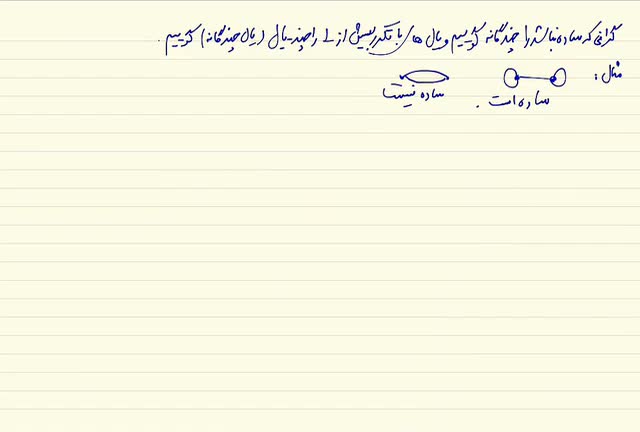 گرافی که ساده نباشد را چندگانه گوییم و یال های با تکرر بیش از 1 را چند-یال (یال چندگانه) گوییم.
مثال:
ساده است. ساده نیست